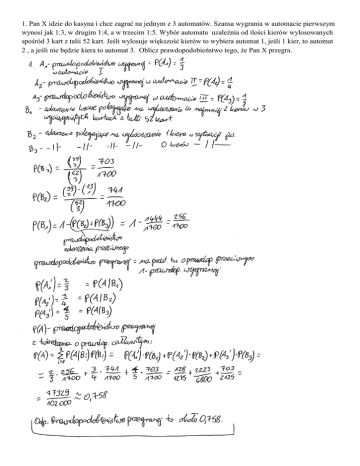 1. Pan X idzie do kasyna i chce zagrać na jednym z 3 automatów. Szansa wygrania w automacie pierwszym
wynosi jak 1:3, w drugim 1:4, a w trzecim 1:5. Wybór automatu uzależnia od ilości kierów wylosowanych
spośród 3 kart z talii 52 kart. Jeśli wylosuje większość kierów to wybiera automat 1, jeśli 1 kier, to automat
2 , a jeśli nie będzie kiera to automat 3. Oblicz prawdopodobieństwo tego, że Pan X przegra.
1. A₁ - prawdopodobieństwo wygranej = P(A₁) = 1/3
w automacie I
A₂ - prawdopodobieństwo wygranej w automacie II = P(A₂) = 1/4
A₃ - prawdopodobieństwo wygranej w automacie III = P(A₃) = 1/5
B₁ - zdarzenie losowe polegające na wylosowaniu co najmniej 2 kierów w 3
wyciągniętych kartach z talii 52 kart
B₂ - zdarzenie polegające na wylosowaniu 1 kiera w sytuacji jw.
B₃ - -||- -||- -||- 0 kierów -||-
P(B₃) = (39 3) / (52 3) = 703/1700
P(B₂) = (39 2)·(13 1) / (52 3) = 741/1700
P(B₁) = 1-(P(B₂)+P(B₃)) = 1 - 1444/1700 = 256/1700
prawdopodobieństwo
zdarzenia przeciwnego
prawdopodobieństwo przegranej =
1- prawdop. wygranej
P(A₁') = 2/3 = P(A|B₁)
P(A₂') = 3/4 = P(A|B₂)
P(A₃') = 4/5 = P(A|B₃)
P(A) - prawdopodobieństwo przegranej
z twierdzenia o prawdop. całkowitym:
P(A) = Σ P(A|Bᵢ)·P(Bᵢ) = P(A₁')·P(B₁) + P(A₂')·P(B₂) + P(A₃')·P(B₃) =
= 2/3 · 256/1700 + 3/4 · 741/1700 + 4/5 · 703/1700 = 128/1275 + 2223/6800 + 703/2125 =
= 77329/102000 ≈ 0,758
Odp. Prawdopodobieństwo przegranej to około 0,758.